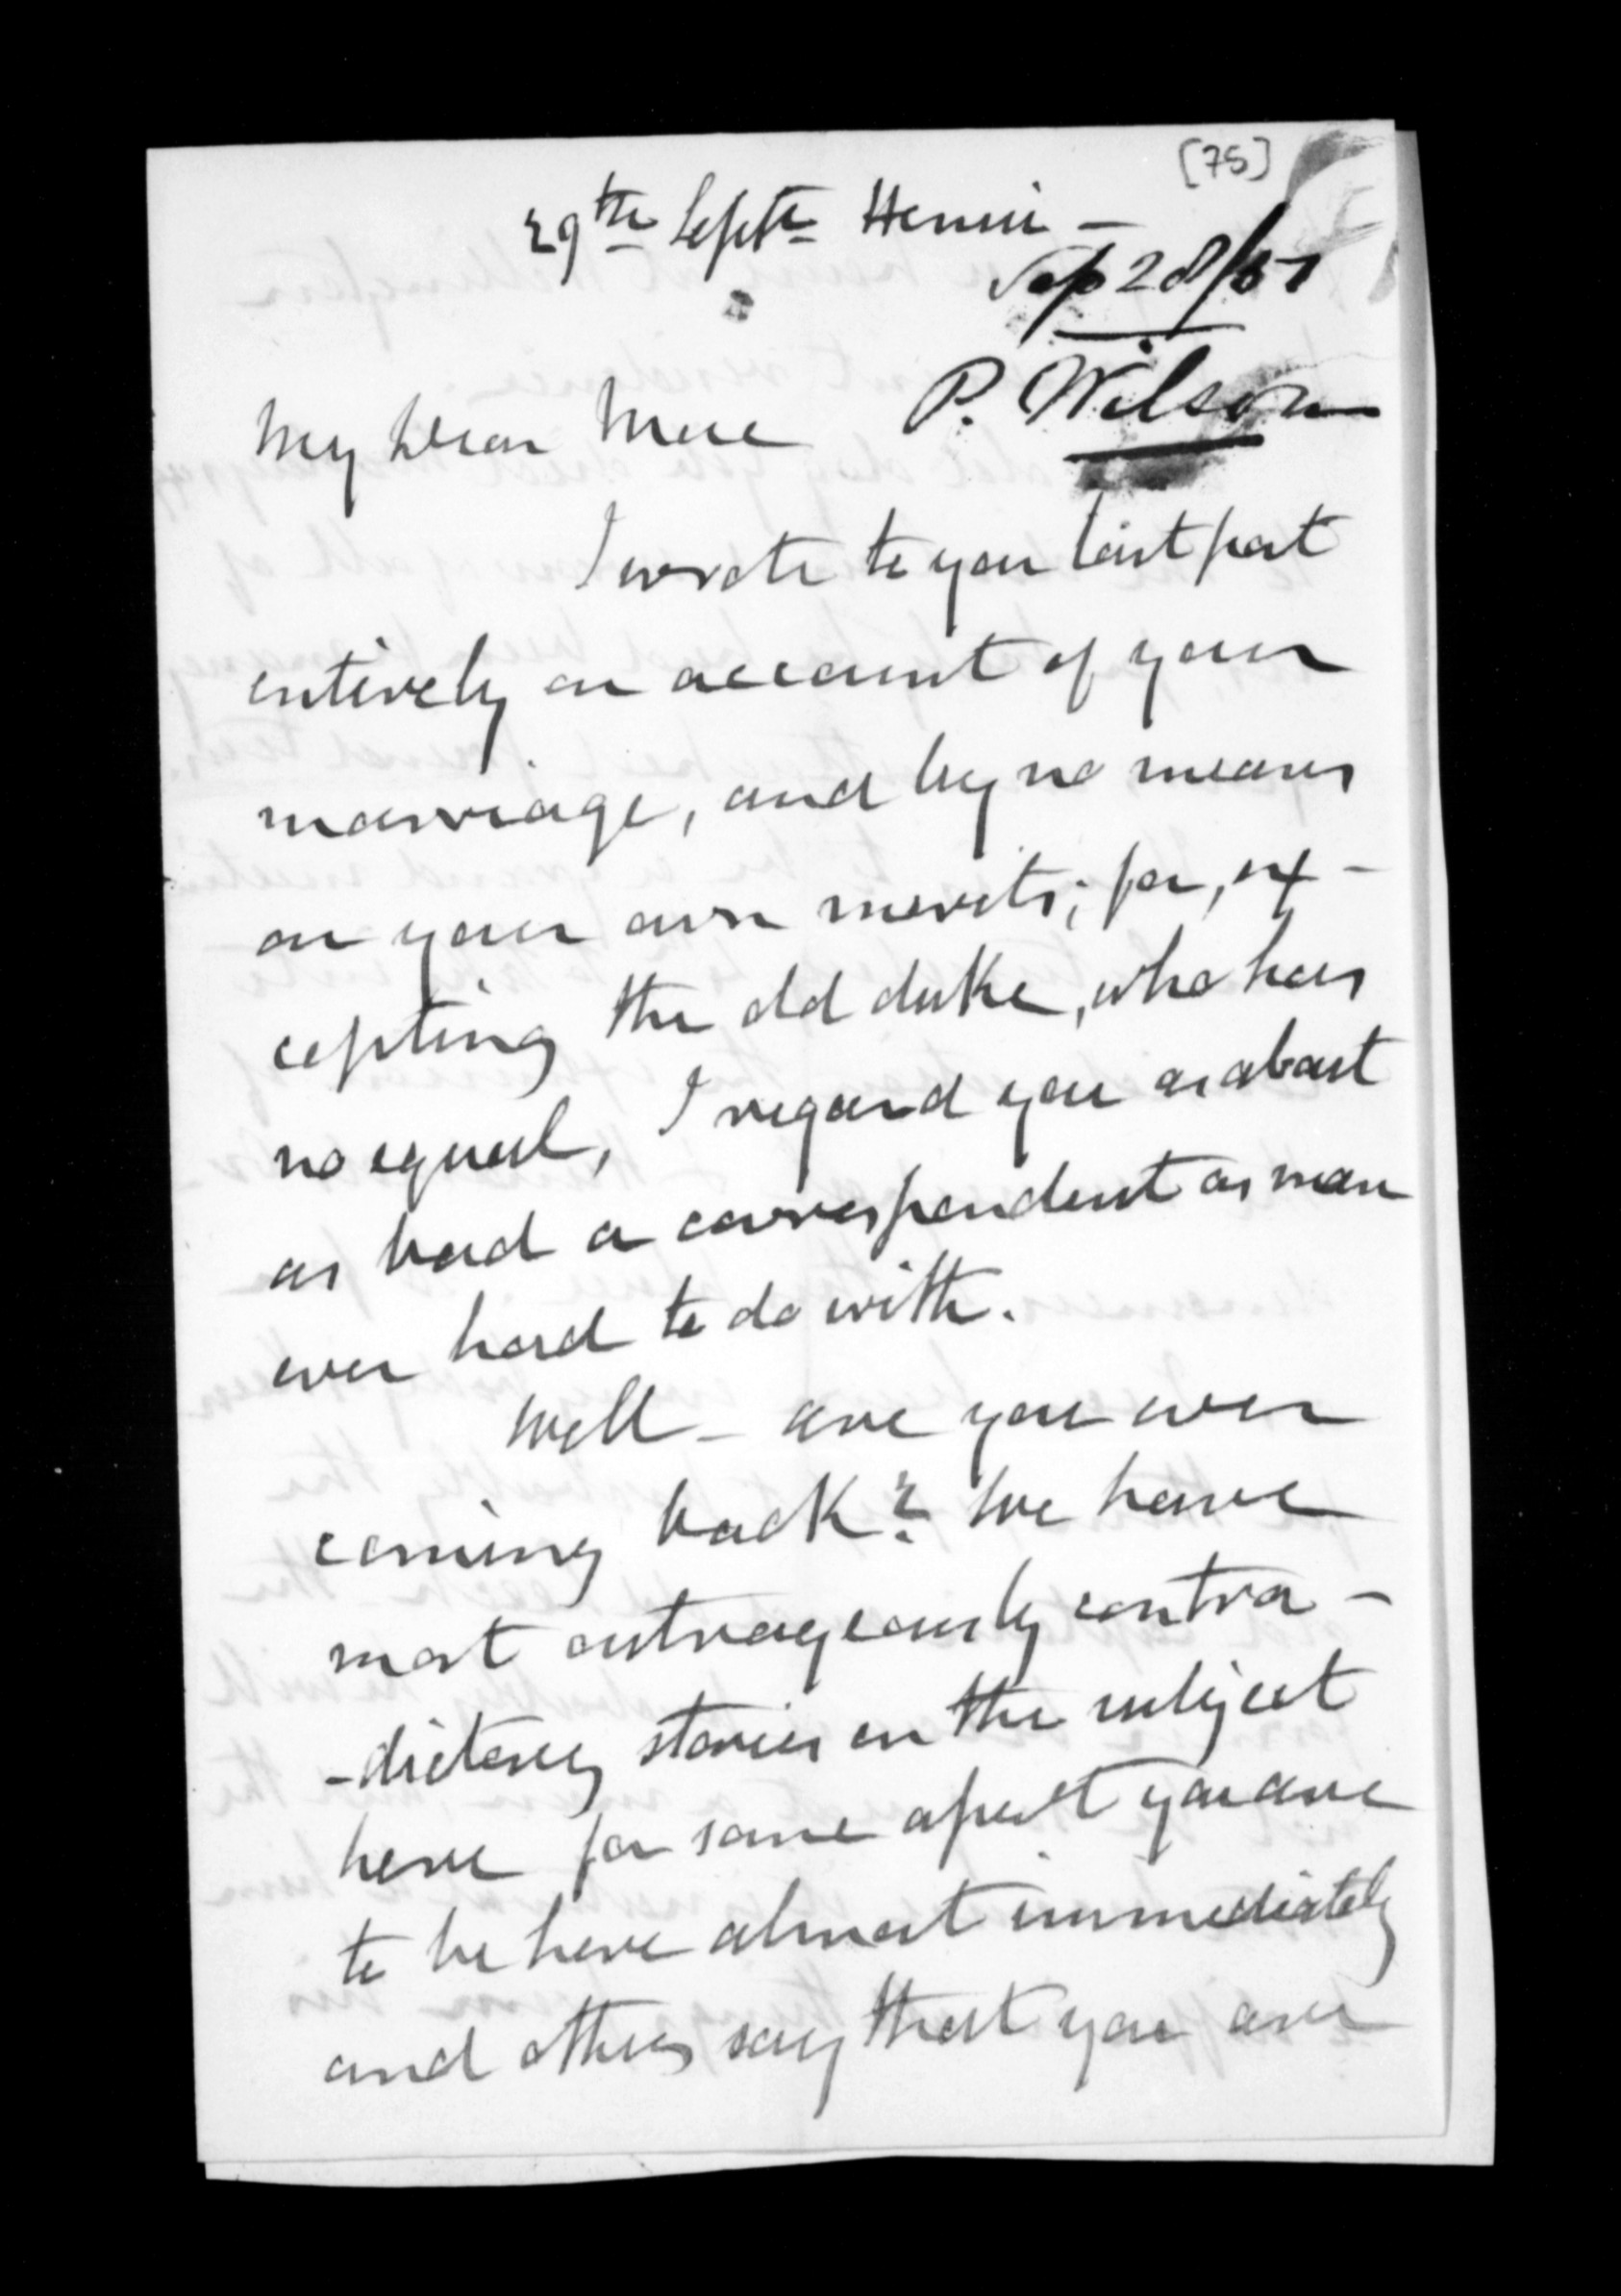 [75]
29th Septr
Sep 28/57
P. Wilson
My Dear
I wrote to you last post
entirely on account of your
marriage, and by no means
on your own merits; for, ex-
cepting the old duke, who has
no equal, I regard you as about
as bad a correspondent as man
ever had to do with.
Well - are you ever
coming back? We have
most outrageously contra-
-dictory stories on the subject
here for some you are
to be here almost immediately
and others say that you are